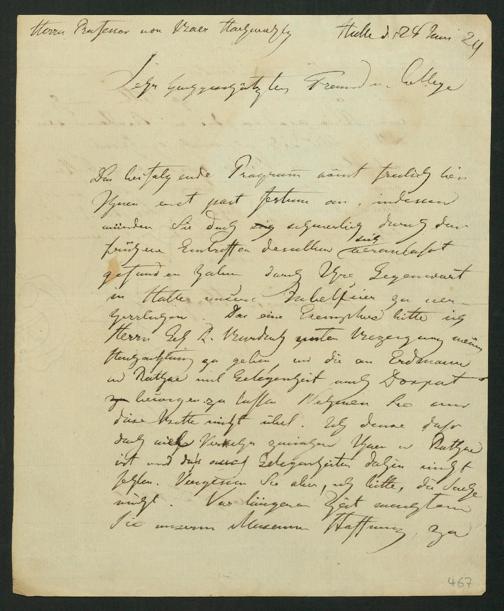 Herrn Professor von Baer Hochwohlg
Halle d. 24 Juni 29
Sehr hochgeschätzter Freund u. College
Das beifolgende Programm kömt freilich bei
Ihnen erst post festum an, indessen
würden Sie doch schwerlich durch das
frühere Eintreffen desselben sich veranlaßt
gefunden haben durch Ihre Gegenwart
in Halle unsere Jubelfeier zu ver-
herrlichen. Das eine Exemplar bitte ich
Herrn unter Bezeigung meiner
Hochachtung zu geben, und die an Erdmann
u Rathke mit Gelegenheit nach Dorpat
besorgen zu lassen. Nehmen Sie mir
diese Bitte nicht übel. Ich denke daß
doch viel Verkehr zwischen Ihnen u Rathke
ist und daß Gelegenheiten dahin nicht
fehlen. Vergessen Sie aber, ich bitte, die Sache
nicht. Vor längerer Zeit machten
Sie unserm Museum Hoffnung, zu
467